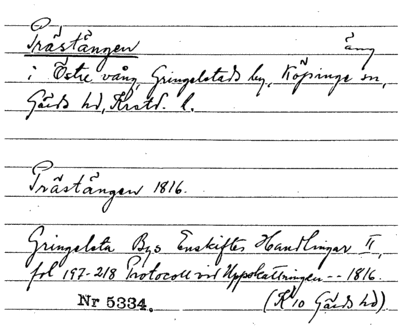 Prästängen äng
i Östre vång, Gringelstads by, Köpinge sn,
Gärds hd, Krstd. l.
Prästängen 1816.
Gringelsta Bys Enskiftes Handlingar II,
fol 197-218 Protocoll vid Uppskattningen -- 1816.
Nr 5334. (K 10 Gärds hd)